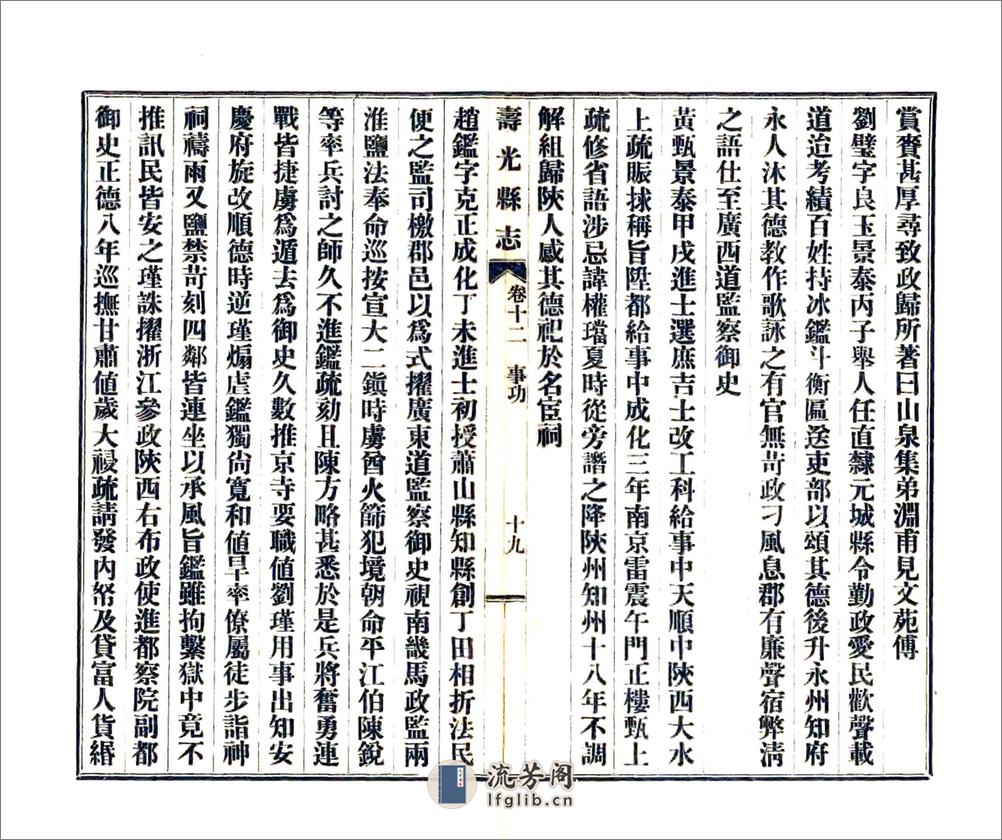 賞賚甚厚尋致政歸所著曰山泉集弟淵甫見文苑傳
劉璧字良玉景泰丙子舉人任直隸元城縣令勤政愛民歡聲載
道迨考績百姓持冰鑑斗衡區送吏部以頌其德後升永州知府
永人沐其德教作歌詠之有官無苛政刁風息郡有廉聲宿弊清
之語仕至廣西道監察御史
黃甄景泰甲戌進士選庶吉士改工科給事中天順中陝西大水
上疏賑捄稱旨陞都給事中成化三年南京雷震午門正樓甄上
疏修省語涉忌諱權璫夏時從旁譖之降陝州知州十八年不調
解組歸陝人感其德祀於名宦祠
壽光縣志 卷十二 事功 十九
趙鑑字克正成化丁未進士初授蕭山縣知縣創丁田相折法民
便之監司檄郡邑以爲式擢廣東道監察御史視南畿馬政監兩
淮鹽法奉命巡按宣大二鎭時虜酋火篩犯境朝命平江伯陳銳
等率兵討之師久不進鑑疏劾且陳方略甚悉於是兵將奮勇連
戰皆捷虜爲遁去爲御史久數推京寺要職値劉瑾用事出知安
慶府旋改順德時逆瑾煽虐鑑獨尙寬和値旱率僚屬徒步詣神
祠禱雨又鹽禁苛刻四鄰皆連坐以承風旨鑑雖拘繫獄中竟不
推訊民皆安之瑾誅擢浙江參政陝西右布政使進都察院副都
御史正德八年巡撫甘肅値歲大祲疏請發內帑及貸富人貨緡
流芳阁
lfglib.cn